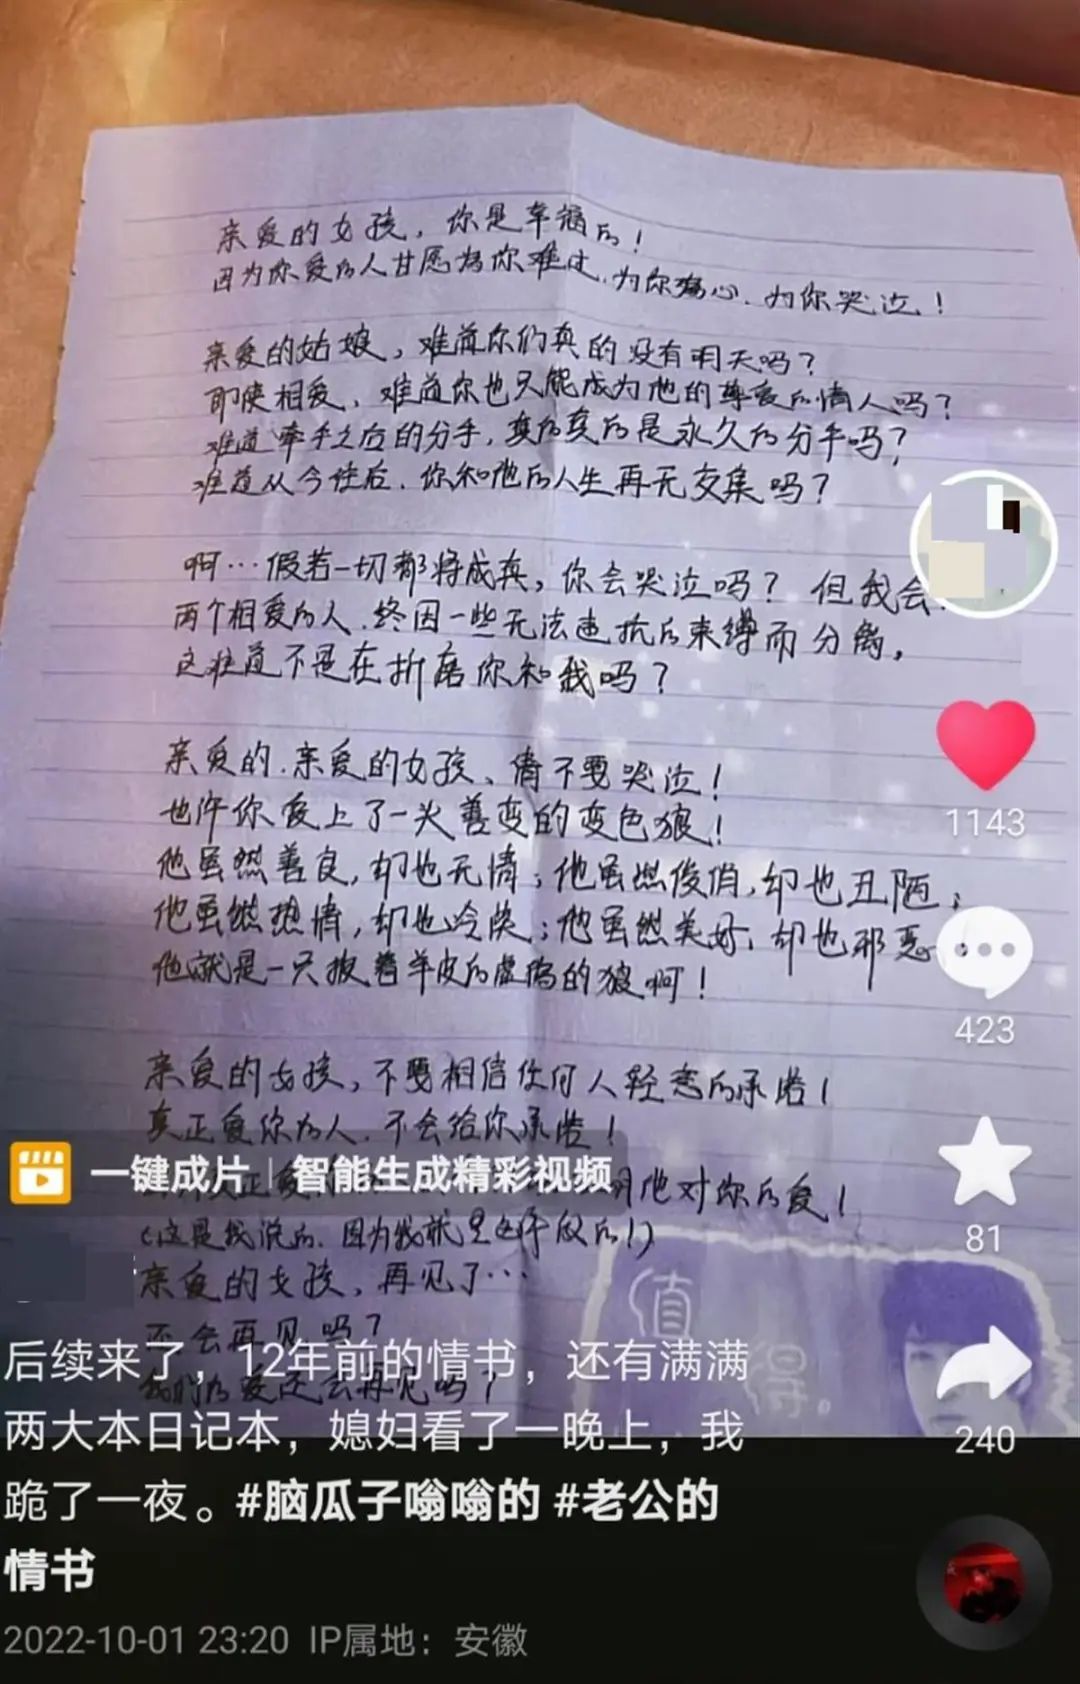 亲爱的女孩，你是幸福的！
因为你爱的人甘愿为你难过、为你伤心、为你哭泣！
亲爱的姑娘，难道你们真的没有明天吗？
即使相爱，难道你也只能成为他的尊爱的情人吗？
难道牵手之后的分手，真的真的是永久的分手吗？
难道从今往后，你和他的人生再无交集吗？
啊…假若一切都将成真，你会哭泣吗？但我会
两个相爱的人，终因一些无法违抗的束缚而分离，
这难道不是在折磨你和我吗？
亲爱的、亲爱的女孩、请不要哭泣！
也许你爱上了一头善变的变色狼！
他虽然善良，却也无情；他虽然俊俏，却也丑陋；
他虽然热情，却也冷淡；他虽然美好，却也邪恶；
他就是一只披着羊皮的虚伪的狼啊！
亲爱的女孩，不要相信任何人轻易的承诺！
真正爱你的人，不会给你承诺！
正爱 明他对你的爱！
(这是我说的，因为我就是这样做的！)
亲爱的女孩，再见了…
还会再见吗？
我们的爱还会再见吗？
值得。
1143
423
81
240
一键成片｜智能生成精彩视频
后续来了，12年前的情书，还有满满
两大本日记本，媳妇看了一晚上，我
跪了一夜。#脑瓜子嗡嗡的 #老公的
情书
2022-10-01 23:20 IP属地：安徽